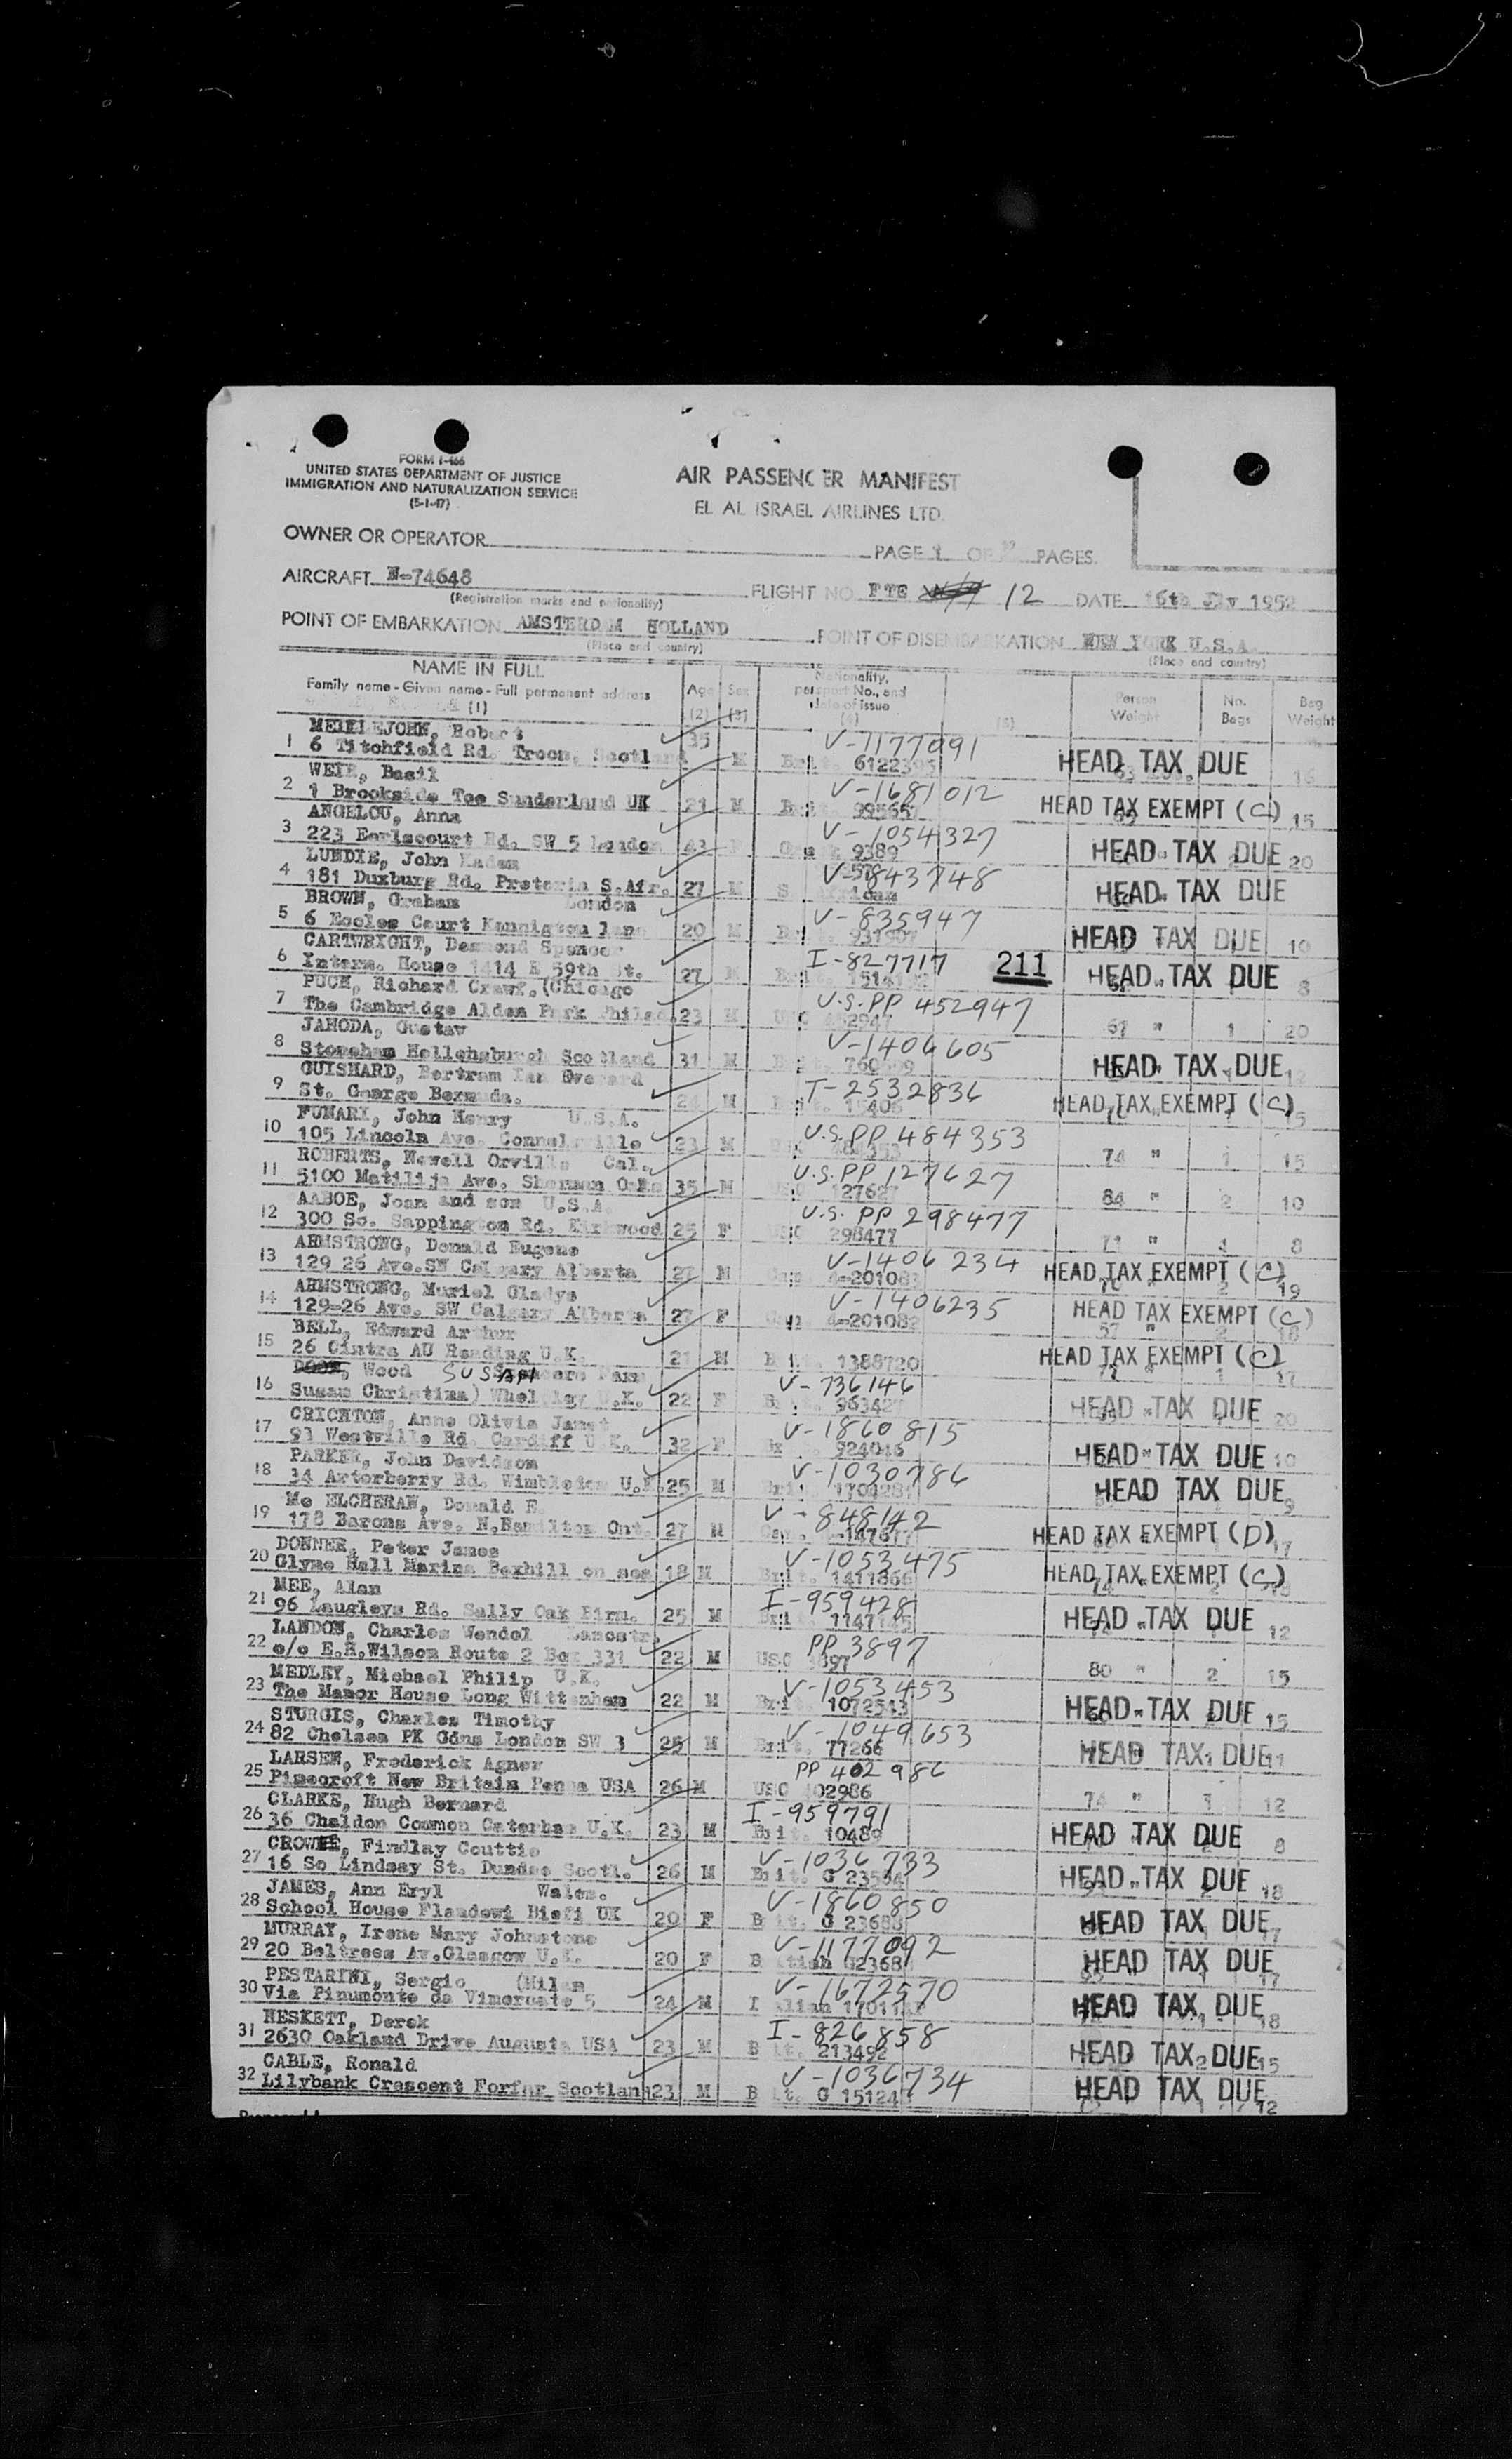 FORM I-466
UNITED STATES DEPARTMENT OF JUSTICE
IMMIGRATION AND NATURALIZATION SERVICE
(5-1-47)
AIR PASSENGER MANIFEST
EL AL ISRAEL AIRLINES LTD.
OWNER OR OPERATOR PAGE 1 OF PAGES.
AIRCRAFT N-74648 FLIGHT NO. FTE 12 DATE 1952
(Registration marks and nationality)
POINT OF EMBARKATION AMSTERDAM HOLLAND POINT OF DISEMBARKATION NEW YORK U.S.A.
(Place and country) (Place and country)
NAME IN FULL
Family name - Given name - Full permanent address Age Sex Nationality, passport No., and date of issue Person Weight No. Bags Bag Weight
(1) (2) (3) (4) (5)
MEIKLEJOHN, Robert 35 V-7177091
1 6 Titchfield Rd. Troon, Scotland M Brit. HEAD TAX DUE 16
WEIR, Basil V-1681012
2 1 Brookside Tce Sunderland UK 21 M Brit. HEAD TAX EXEMPT (C) 15
ANGELOU, Anna V-1054327
3 223 Earlscourt Rd. SW 5 London 43 9389 HEAD TAX DUE 20
LUNDIE, John V-843748
4 181 Duxburg Rd. Pretoria S.Afr. 27 M HEAD TAX DUE
BROWN, Graham London V-835947
5 6 Eccles Court Kennigton lane 20 M HEAD TAX DUE 10
CARTWRIGHT, Desmond Spencer I-827717 211
6 Intern. House 1414 E 59th St. 27 M HEAD TAX DUE 8
PUGH, Richard Crawf. (Chicago U.S.PP 452947
7 The Cambridge Alden Park Philad. 23 M 452947 67 " 1 20
JAHODA, Gustav V-1406605
8 Stoneham Hellensburgh Scotland 31 M HEAD TAX DUE 12
GUISHARD, Bertram Ian Everard T-2532836
9 St. George Bermuda. 24 M HEAD TAX EXEMPT (C) 15
FUNARI, John Henry U.S.A. U.S.PP 484353
10 105 Lincoln Ave. Connelsville 23 M 74 " 1 15
ROBERTS, Newell Orville Cal. U.S.PP 127627
11 5100 Matilija Ave. Sherman Oaks 35 M 84 " 2 10
AABOE, Joan and son U.S.A. U.S. PP 298477
12 300 So. Sappington Rd. Kirkwood 25 F USC 298477 71 " 8
ARMSTRONG, Donald Eugene V-1406234
13 129 26 Ave.SW Calgary Alberta 27 M HEAD TAX EXEMPT (C) 19
ARMSTRONG, Muriel Gladys V-1406235
14 129-26 Ave. SW Calgary Alberta 27 F 4-201082 HEAD TAX EXEMPT (C)
BELL, Edward Arthur
15 26 Cintra AU Reading U.K. 21 M 1388720 HEAD TAX EXEMPT (C) 17
Wood SUSSAN V-736146
16 Susan Christina) U.K. 22 F HEAD TAX DUE 20
CRICHTON, Anne Olivia Janet V-1860815
17 93 Westville Rd. Cardiff U.K. 32 F 924046 HEAD TAX DUE 10
PARKER, John Davidson V-1030786
18 34 Arterberry Rd. Wimbledon U.K. 25 M HEAD TAX DUE 9
Mc ELCHERAN, Donald V-848142
19 178 Barons Ave. N.Hamilton Ont. 27 M HEAD TAX EXEMPT (D) 17
DONNER, Peter James V-1053475
20 Glyne Hall Marina Bexhill on sea 18 M Brit. HEAD TAX EXEMPT (C)
MEE, Alan I-959428
21 96 Laugleys Rd. Sally Oak Birm. 25 M HEAD TAX DUE 12
LANDON, Charles Wendel PP 3897
22 c/o E.H.Wilson Route 2 Box 331 22 M USC 3897 80 " 2 15
MEDLEY, Michael Philip U.K. V-1053453
23 The Manor House Long Wittenham 22 M Brit. 1072543 HEAD TAX DUE 15
STURGIS, Charles Timothy V-1049653
24 82 Chelsea PK Gdns London SW 3 25 M Brit. 77266 HEAD TAX DUE 11
LARSEN, Frederick Agnew PP 402986
25 Pinecroft New Britain Penna USA 26 M USC 402986 74 " 12
CLARKE, Hugh Bernard I-959791
26 36 Chaldon Common Caterham U.K. 23 M Brit. 10489 HEAD TAX DUE 8
CROWE, Findlay Couttie V-1036733
27 16 So Lindsay St. Dundee Scotl. 26 M Brit. HEAD TAX DUE 18
JAMES, Ann Eryl Wales. V-1860850
28 School House UK 20 F HEAD TAX DUE 17
MURRAY, Irene Mary Johnstone V-1177092
29 20 Beltrees Av.Glasgow U.K. 20 F HEAD TAX DUE 17
PESTARINI, Sergio (Milan V-1672570
30 Via Pinumonte da Vimercate 5 24 M HEAD TAX DUE 18
HESKETT, Derek I-826858
31 2630 Oakland Drive Augusta USA 23 M 213492 HEAD TAX 2 DUE 15
CABLE, Ronald V-1036734
32 Lilybank Crescent Forfar Scotland 23 M HEAD TAX DUE 12